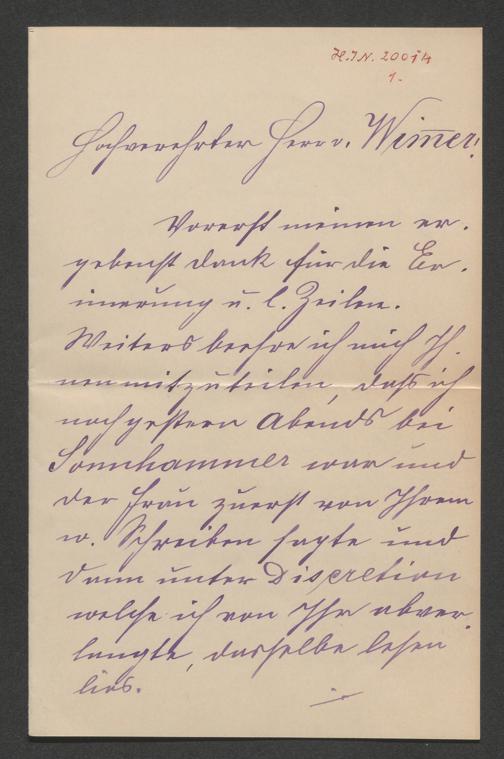 H.I.N. 20014
1.
Hochverehrter Herr v. Wim̅er!
Vorerst meinen er-
gebenst Dank für die Er-
innerung u. l. Zeilen.
Weiters beehre ich mich Ih-
nen mitzuteilen, daß ich
noch gestern Abends bei
Sonnhammer war und
der Frau zuerst von Ihrem
w. Schreiben sagte und
dann unter Discretion
welche ich von Ihr abver-
langte, dasselbe lesen
lies.